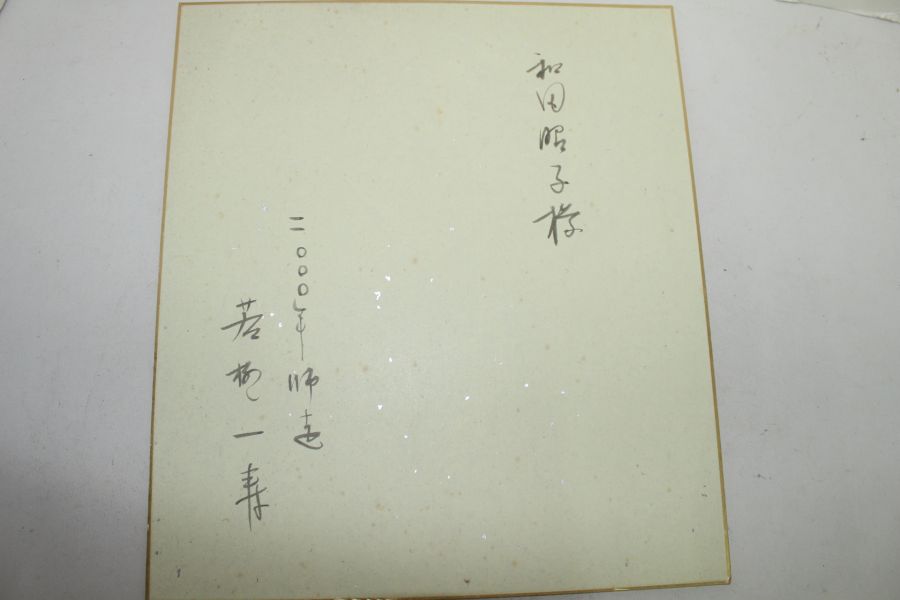 和田昭子様
二〇〇〇年師走
若柳一寿